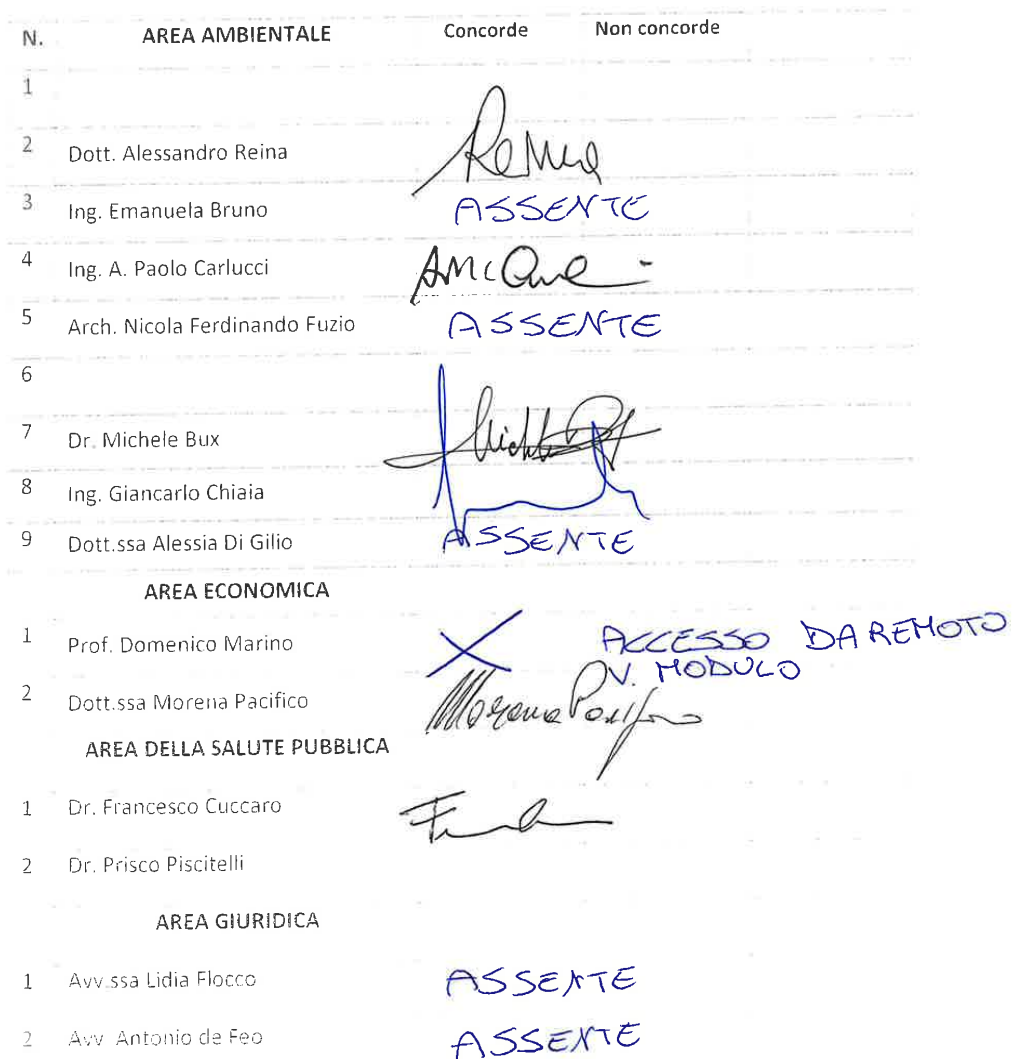 N. AREA AMBIENTALE Concorde Non concorde
1
2 Dott. Alessandro Reina Reina
3 Ing. Emanuela Bruno ASSENTE
4 Ing. A. Paolo Carlucci
5 Arch. Nicola Ferdinando Fuzio ASSENTE
6
7 Dr. Michele Bux
8 Ing. Giancarlo Chiaia
9 Dott.ssa Alessia Di Gilio ASSENTE
AREA ECONOMICA
1 Prof. Domenico Marino X ACCESSO DA REMOTO
V. MODULO
2 Dott.ssa Morena Pacifico Morena Pacifico
AREA DELLA SALUTE PUBBLICA
1 Dr. Francesco Cuccaro
2 Dr. Prisco Piscitelli
AREA GIURIDICA
1 Avv.ssa Lidia Flocco ASSENTE
2 Avv. Antonio de Feo ASSENTE